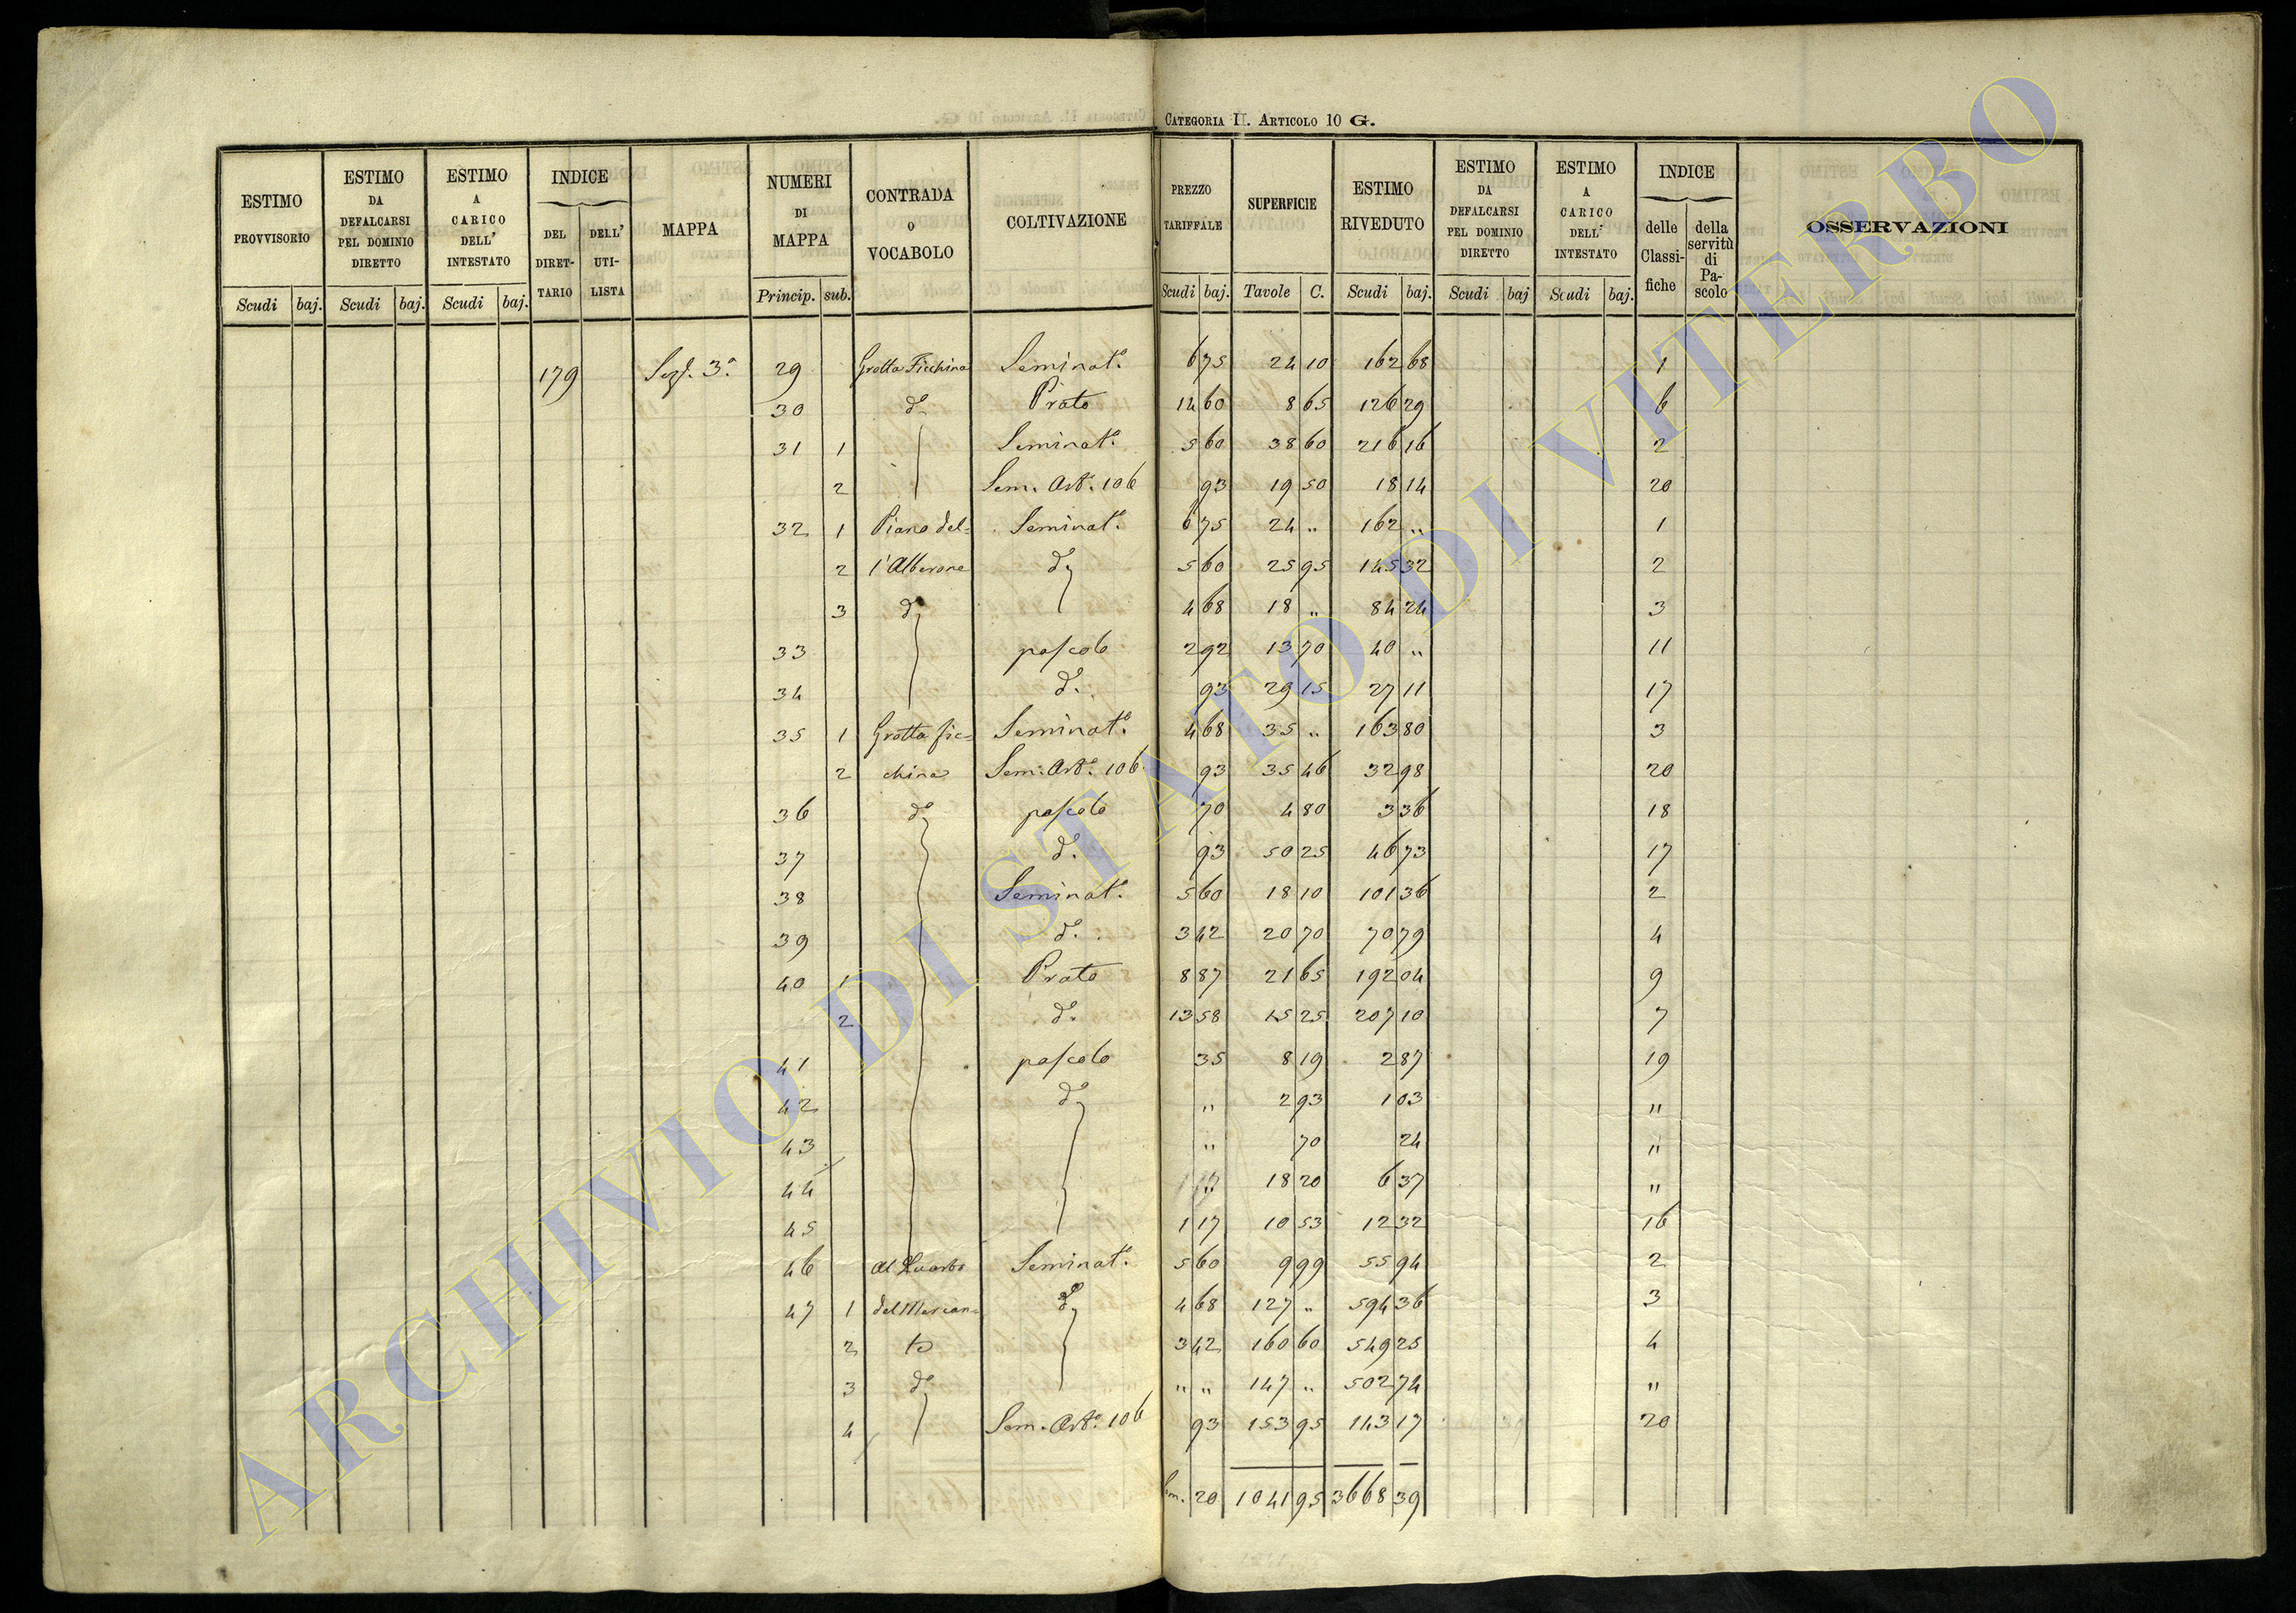 CATEGORIA II. ARTICOLO 10 G.
ESTIMO PROVVISORIO | ESTIMO DA DEFALCARSI PEL DOMINIO DIRETTO | ESTIMO A CARICO DELL' INTESTATO | INDICE DEL DIRETTARIO | DELL' UTILISTA | MAPPA | NUMERI DI MAPPA | CONTRADA O VOCABOLO | COLTIVAZIONE | PREZZO TARIFFALE | SUPERFICIE | ESTIMO RIVEDUTO | ESTIMO DA DEFALCARSI PEL DOMINIO DIRETTO | ESTIMO A CARICO DELL' INTESTATO | INDICE delle Classifiche | della servitù di Pascolo | OSSERVAZIONI
Scudi | baj. | Scudi | baj. | Scudi | baj. | Princip. | sub. | Scudi | baj. | Tavole | C. | Scudi | baj. | Scudi | baj | Scudi | baj.
179 | Sezf. 3ª | 29 | Grotta Ficchina | Seminat.º | 6 75 | 24 10 | 162 68 | 1
30 | dº | Prato | 14 60 | 8 65 | 126 29 | 6
31 | 1 | Seminat.º | 5 60 | 38 60 | 216 16 | 2
2 | Sem. Art.º 106 | 93 | 19 50 | 18 14 | 20
32 | 1 | Piano del- | Seminat.º | 6 75 | 24 " | 162 " | 1
2 | l'Alberone | dº | 5 60 | 25 95 | 145 32 | 2
3 | dº | 4 68 | 18 " | 84 24 | 3
33 | pascolo | 2 92 | 13 70 | 40 " | 11
34 | dº | 93 | 29 15 | 27 11 | 17
35 | 1 | Grotta fic= | Seminat.º | 4 68 | 35 " | 163 80 | 3
2 | china | Sem. Art.º 106 | 93 | 35 46 | 32 98 | 20
36 | dº | pascolo | 70 | 4 80 | 3 36 | 18
37 | dº | 93 | 50 25 | 46 73 | 17
38 | Seminat.º | 5 60 | 18 10 | 101 36 | 2
39 | dº | 3 42 | 20 70 | 70 79 | 4
40 | 1 | Prato | 8 87 | 21 65 | 192 04 | 9
2 | dº | 13 58 | 15 25 | 207 10 | 7
41 | pascolo | 35 | 8 19 | 2 87 | 19
42 | dº | " | 2 93 | 1 03 | "
43 | " | 70 | 24 | "
44 | " | 18 20 | 6 37 | "
45 | 1 17 | 10 53 | 12 32 | 16
46 | Al | Seminat.º | 5 60 | 9 99 | 55 94 | 2
47 | 1 | del Mercan= | dº | 4 68 | 127 " | 594 36 | 3
2 | to | 3 42 | 160 60 | 549 25 | 4
3 | dº | " " | 147 " | 502 74 | "
4 | Sem. Art.º 106 | 93 | 153 95 | 143 17 | 20
20 | 1041 95 | 3668 39
ARCHIVIO DI STATO DI VITERBO